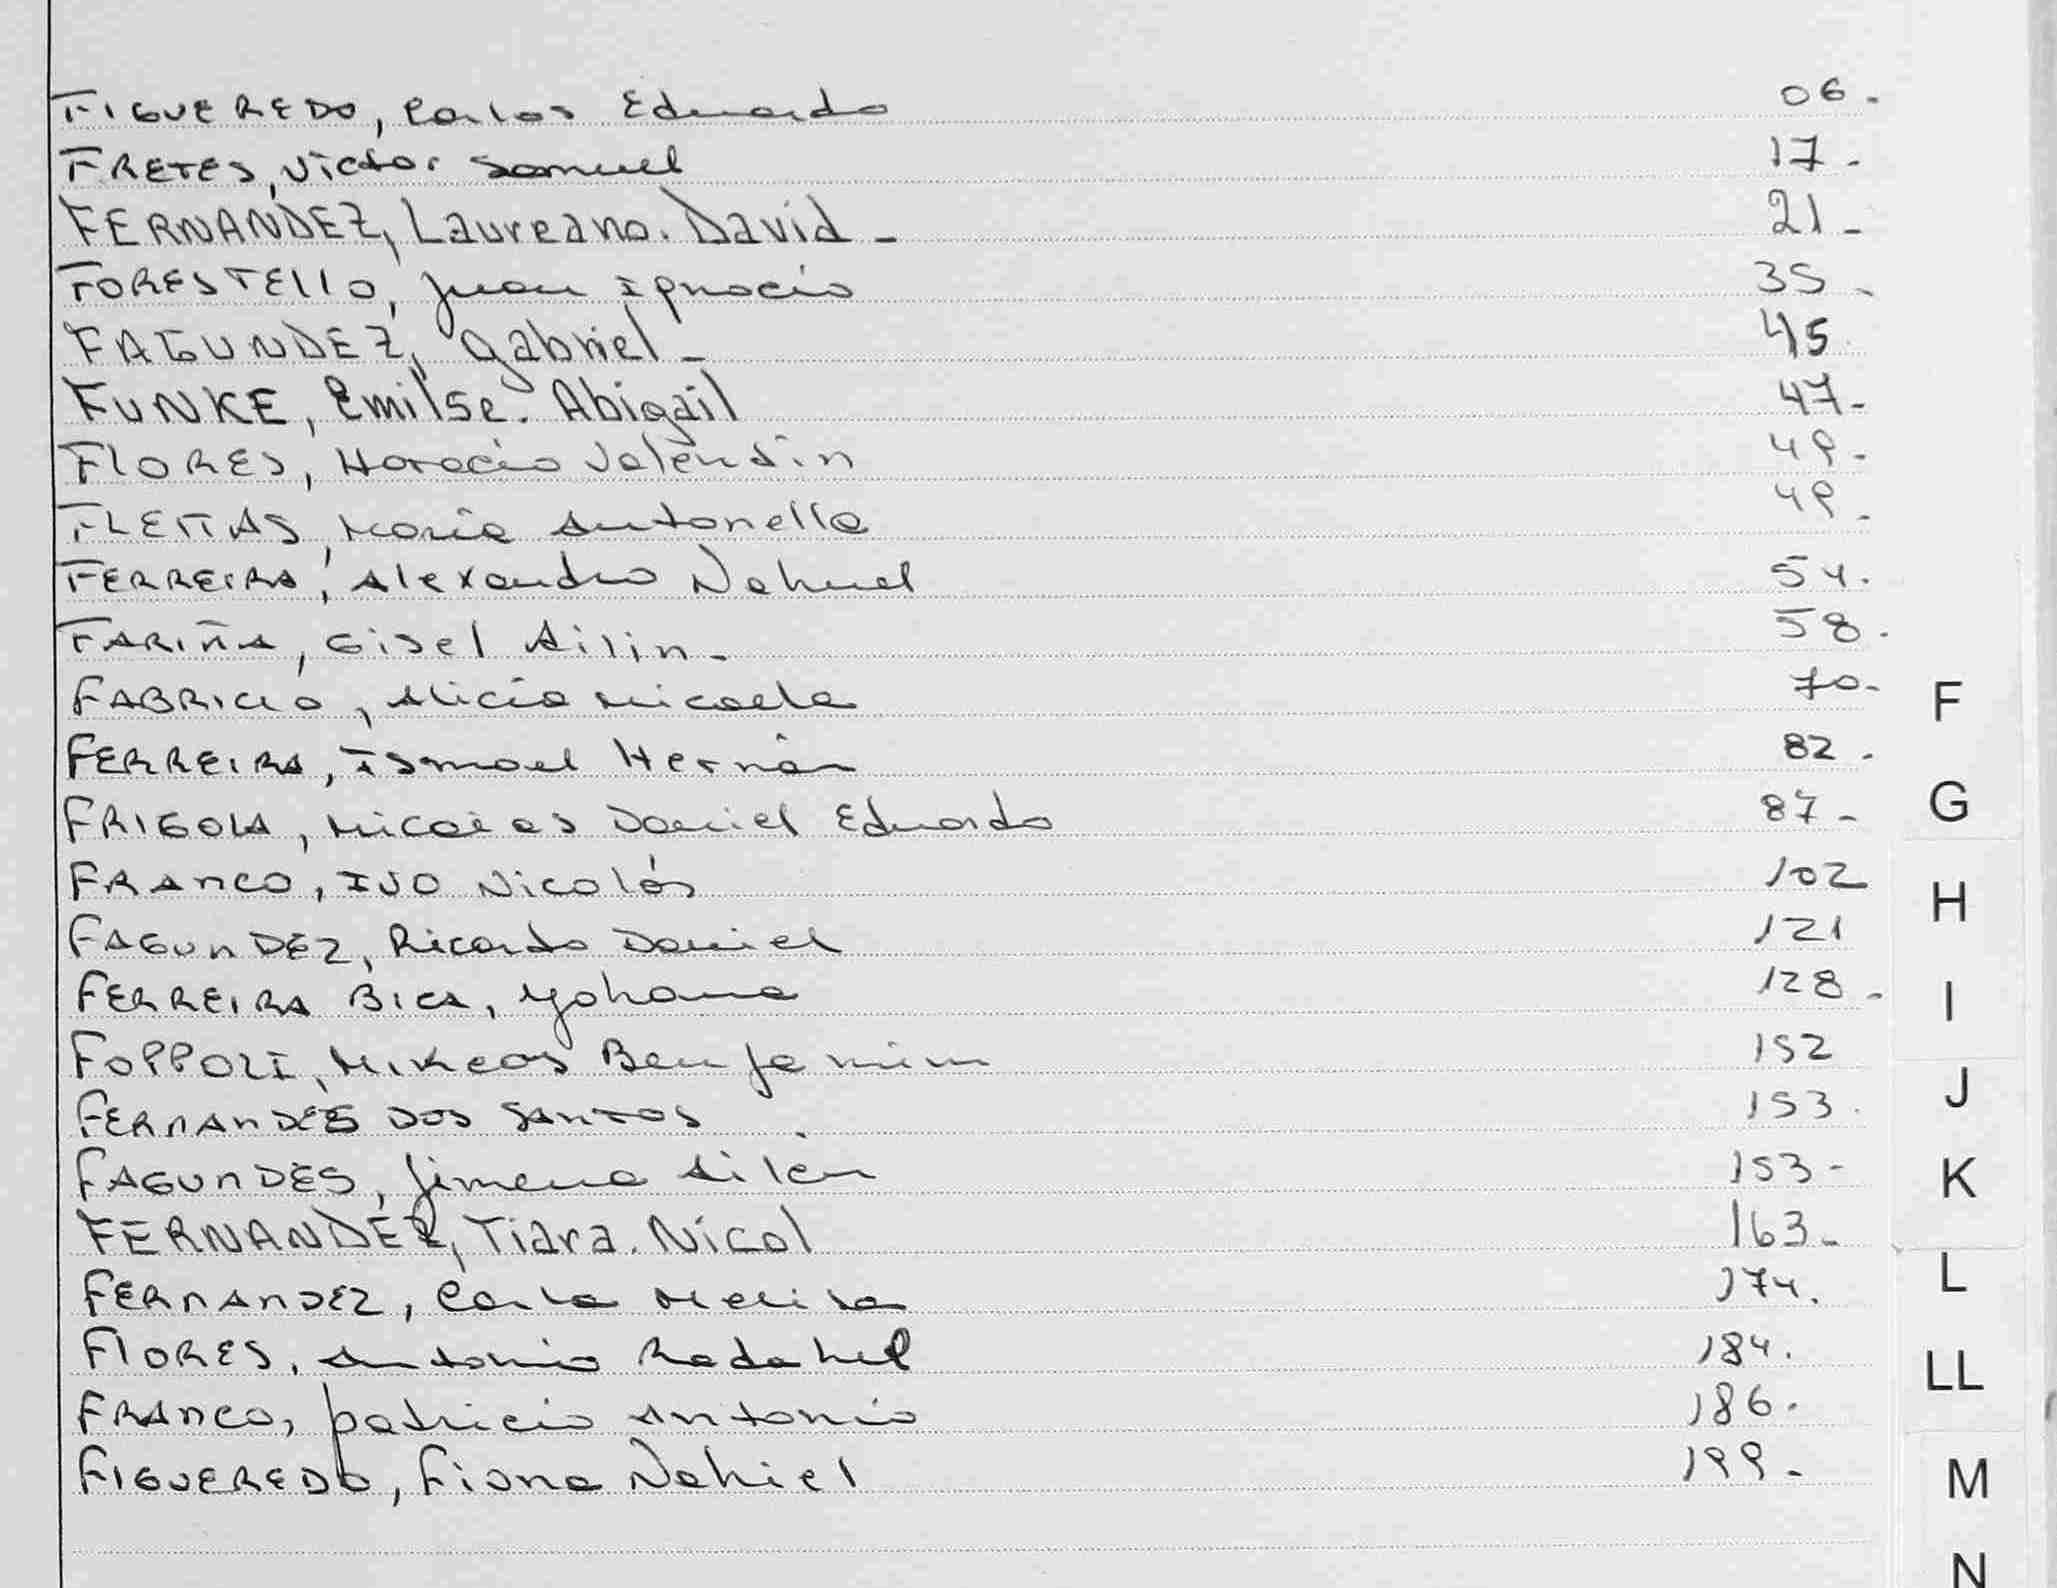 FIGUEREDO, Carlos Eduardo 06.
FRETES, Victor Samuel 17.
FERNANDEZ, Laureano. David - 21-
FORESTELLO, Juan Ignacio 35.
FAGUNDEZ, Gabriel - 45
FUNKE, Emilse. Abigail 47-
FLORES, Horacio Valentin 49.
FLEITAS, Maria Antonella 49.
FERREIRA, Alexandro Nahuel 54.
FARIÑA, Gisel Ailin - 58.
FABRICIO, Alicia Micaela 70-
FERREIRA, Ismael Hernán 82.
FRIGOLA, Daniel Eduardo 87-
FRANCO, IVO Nicolás 102
FAGUNDEZ, Ricardo Daniel 121
FERREIRA BICA, Yohana 128.
FOPPOLI, Benjamim 152
FERNANDES DOS SANTOS 153.
FAGUNDES, Jimena Ailen 153-
FERNANDEZ, Tiara. Nicol 163-
FERNANDEZ, Carla Melisa 174.
FLORES, Antonio 184.
FRANCO, patricio Antonio 186.
FIGUEREDO, Fiona Nahiel 199-
F
G
H
I
J
K
L
LL
M
N